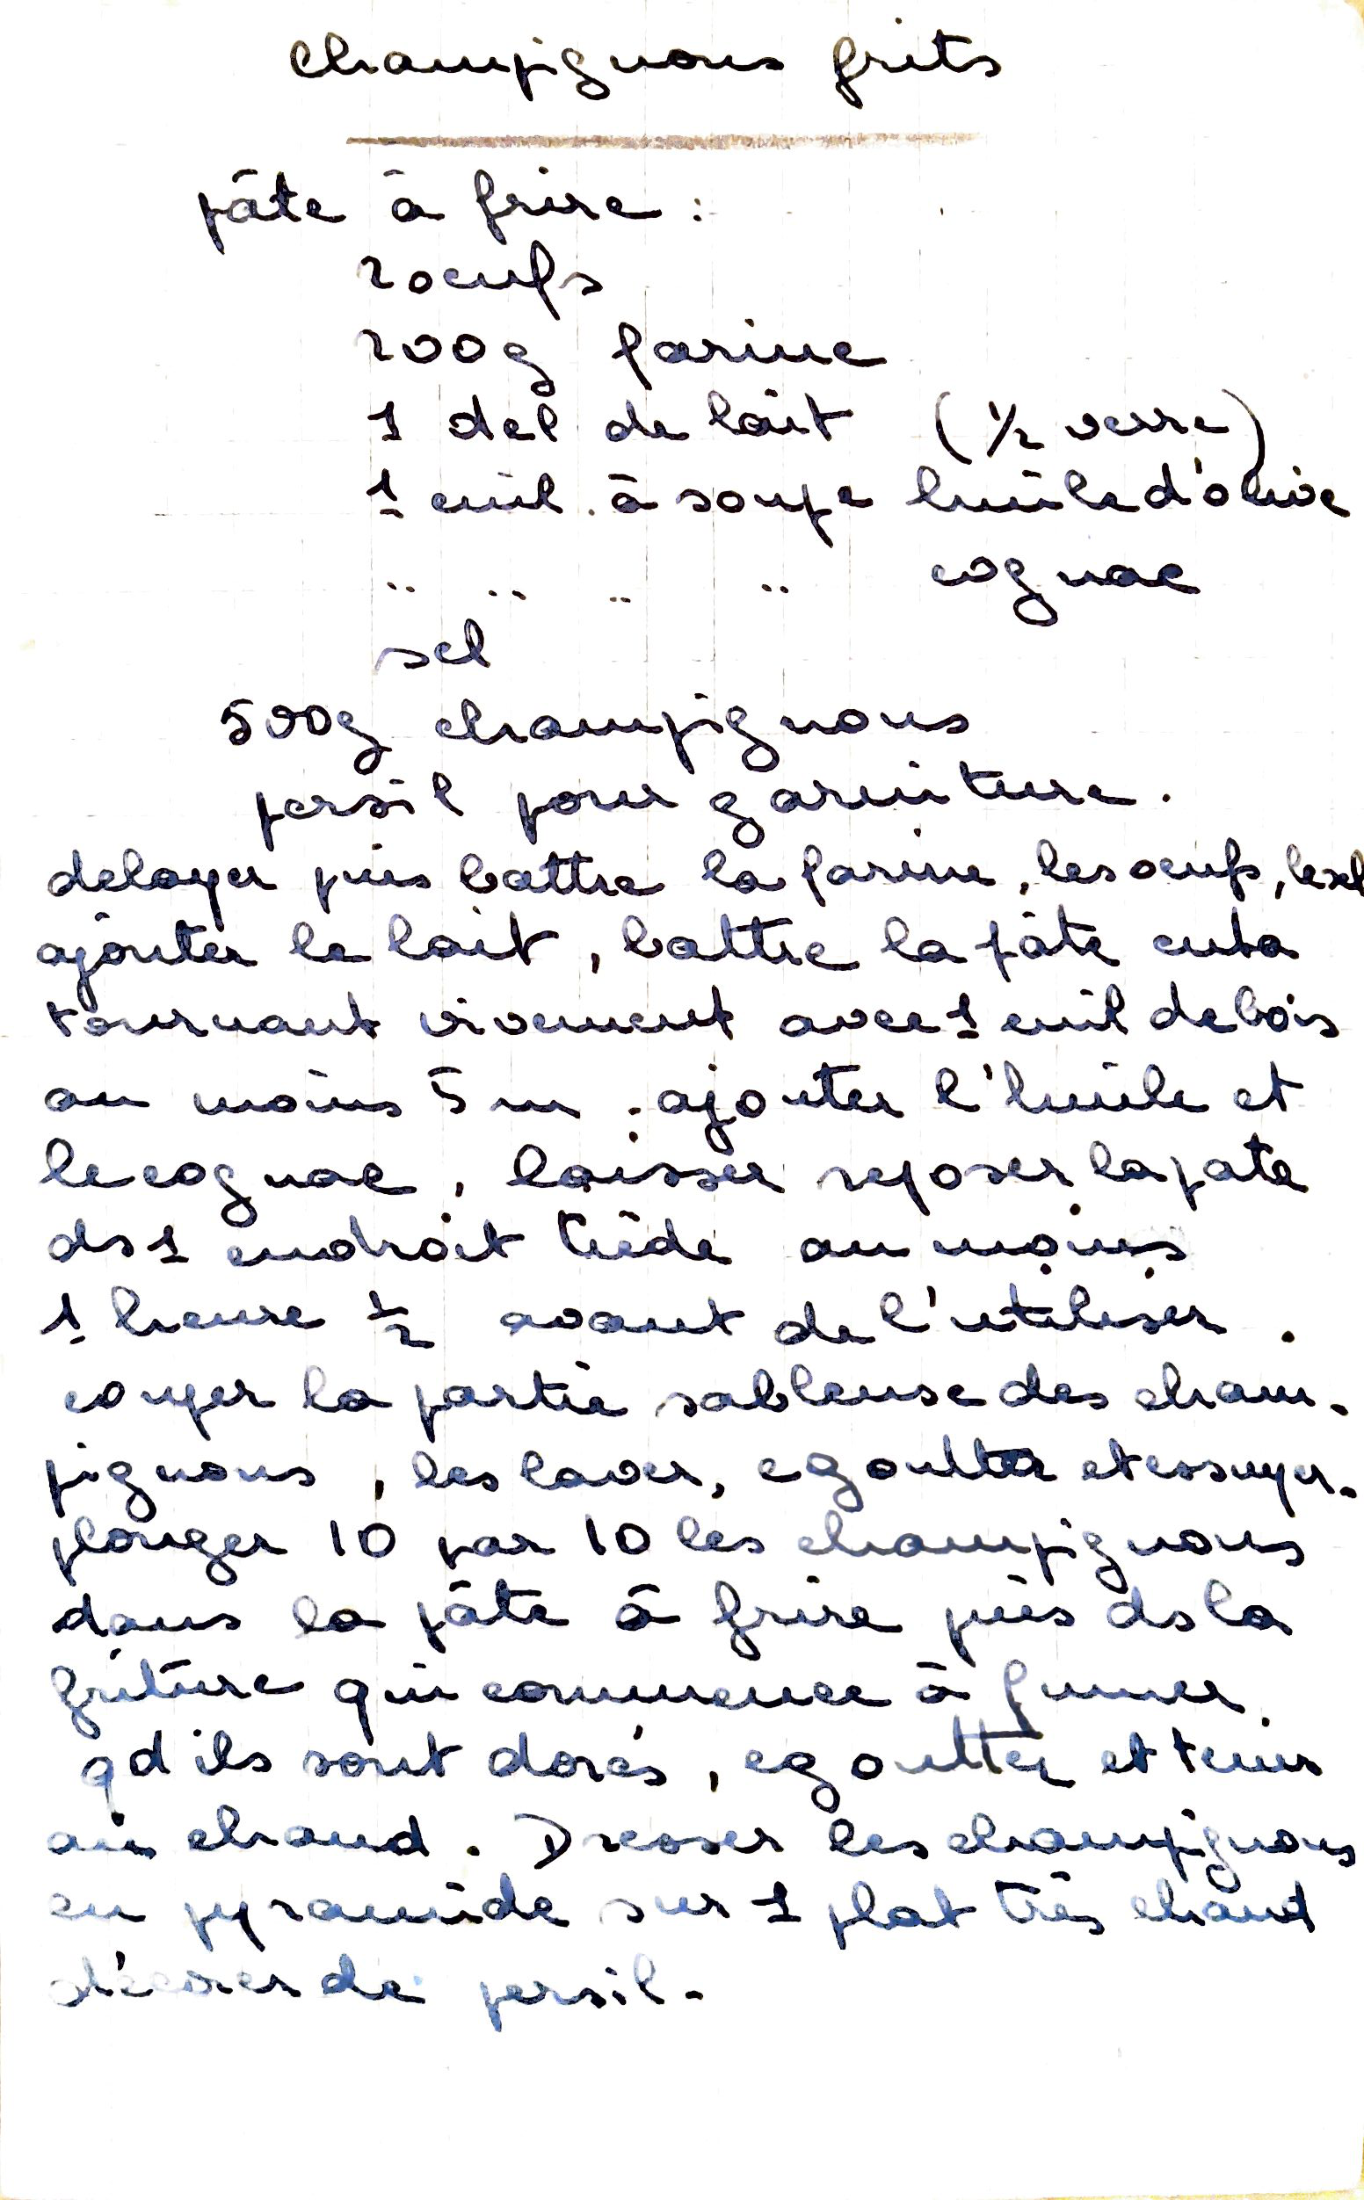 Champignons frits
pâte à frire :
2 oeufs
200g farine
1 del de lait (1/2 verre)
1 cuil. à soupe huile d'olive
" " " " cognac
sel
500g champignons
persil pour garniture.
delayer puis battre la farine, les oeufs, le sel
ajouter le lait, battre la pâte en la
tournant vivement avec 1 cuil de bois
au moins 5 m. ajouter l'huile et
le cognac, laisser reposer la pate
ds 1 endroit tiède au moins
1 heure 1/2 avant de l'utiliser.
couper la partie sableuse des cham-
pignons, les laver, egoutter et essuyer.
plonger 10 par 10 les champignons
dans la pâte à frire puis ds la
friture qui commence à fumer.
qd ils sont dorés, egoutter et tenir
au chaud. Dresser les champignons
en pyramide sur 1 plat très chaud
décorer de persil.